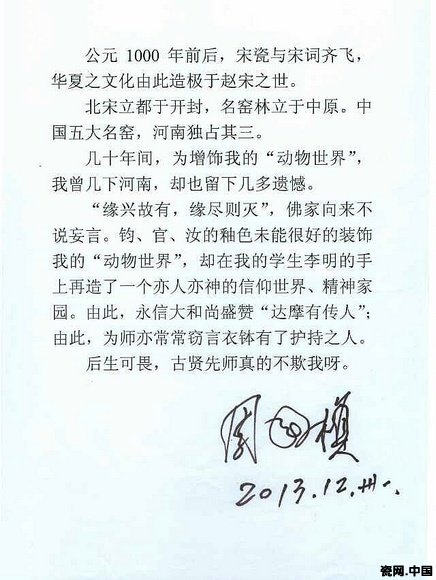 公元 1000 年前后，宋瓷与宋词齐飞，
华夏之文化由此造极于赵宋之世。
北宋立都于开封，名窑林立于中原。中
国五大名窑，河南独占其三。
几十年间，为增饰我的“动物世界”，
我曾几下河南，却也留下几多遗憾。
“缘兴故有，缘尽则灭”，佛家向来不
说妄言。钧、官、汝的釉色未能很好的装饰
我的“动物世界”，却在我的学生李明的手
上再造了一个亦人亦神的信仰世界、精神家
园。由此，永信大和尚盛赞“达摩有传人”；
由此，为师亦常常窃言衣钵有了护持之人。
后生可畏，古贤先师真的不欺我呀。
周国桢
2013.12.卅一.
瓷网.中国